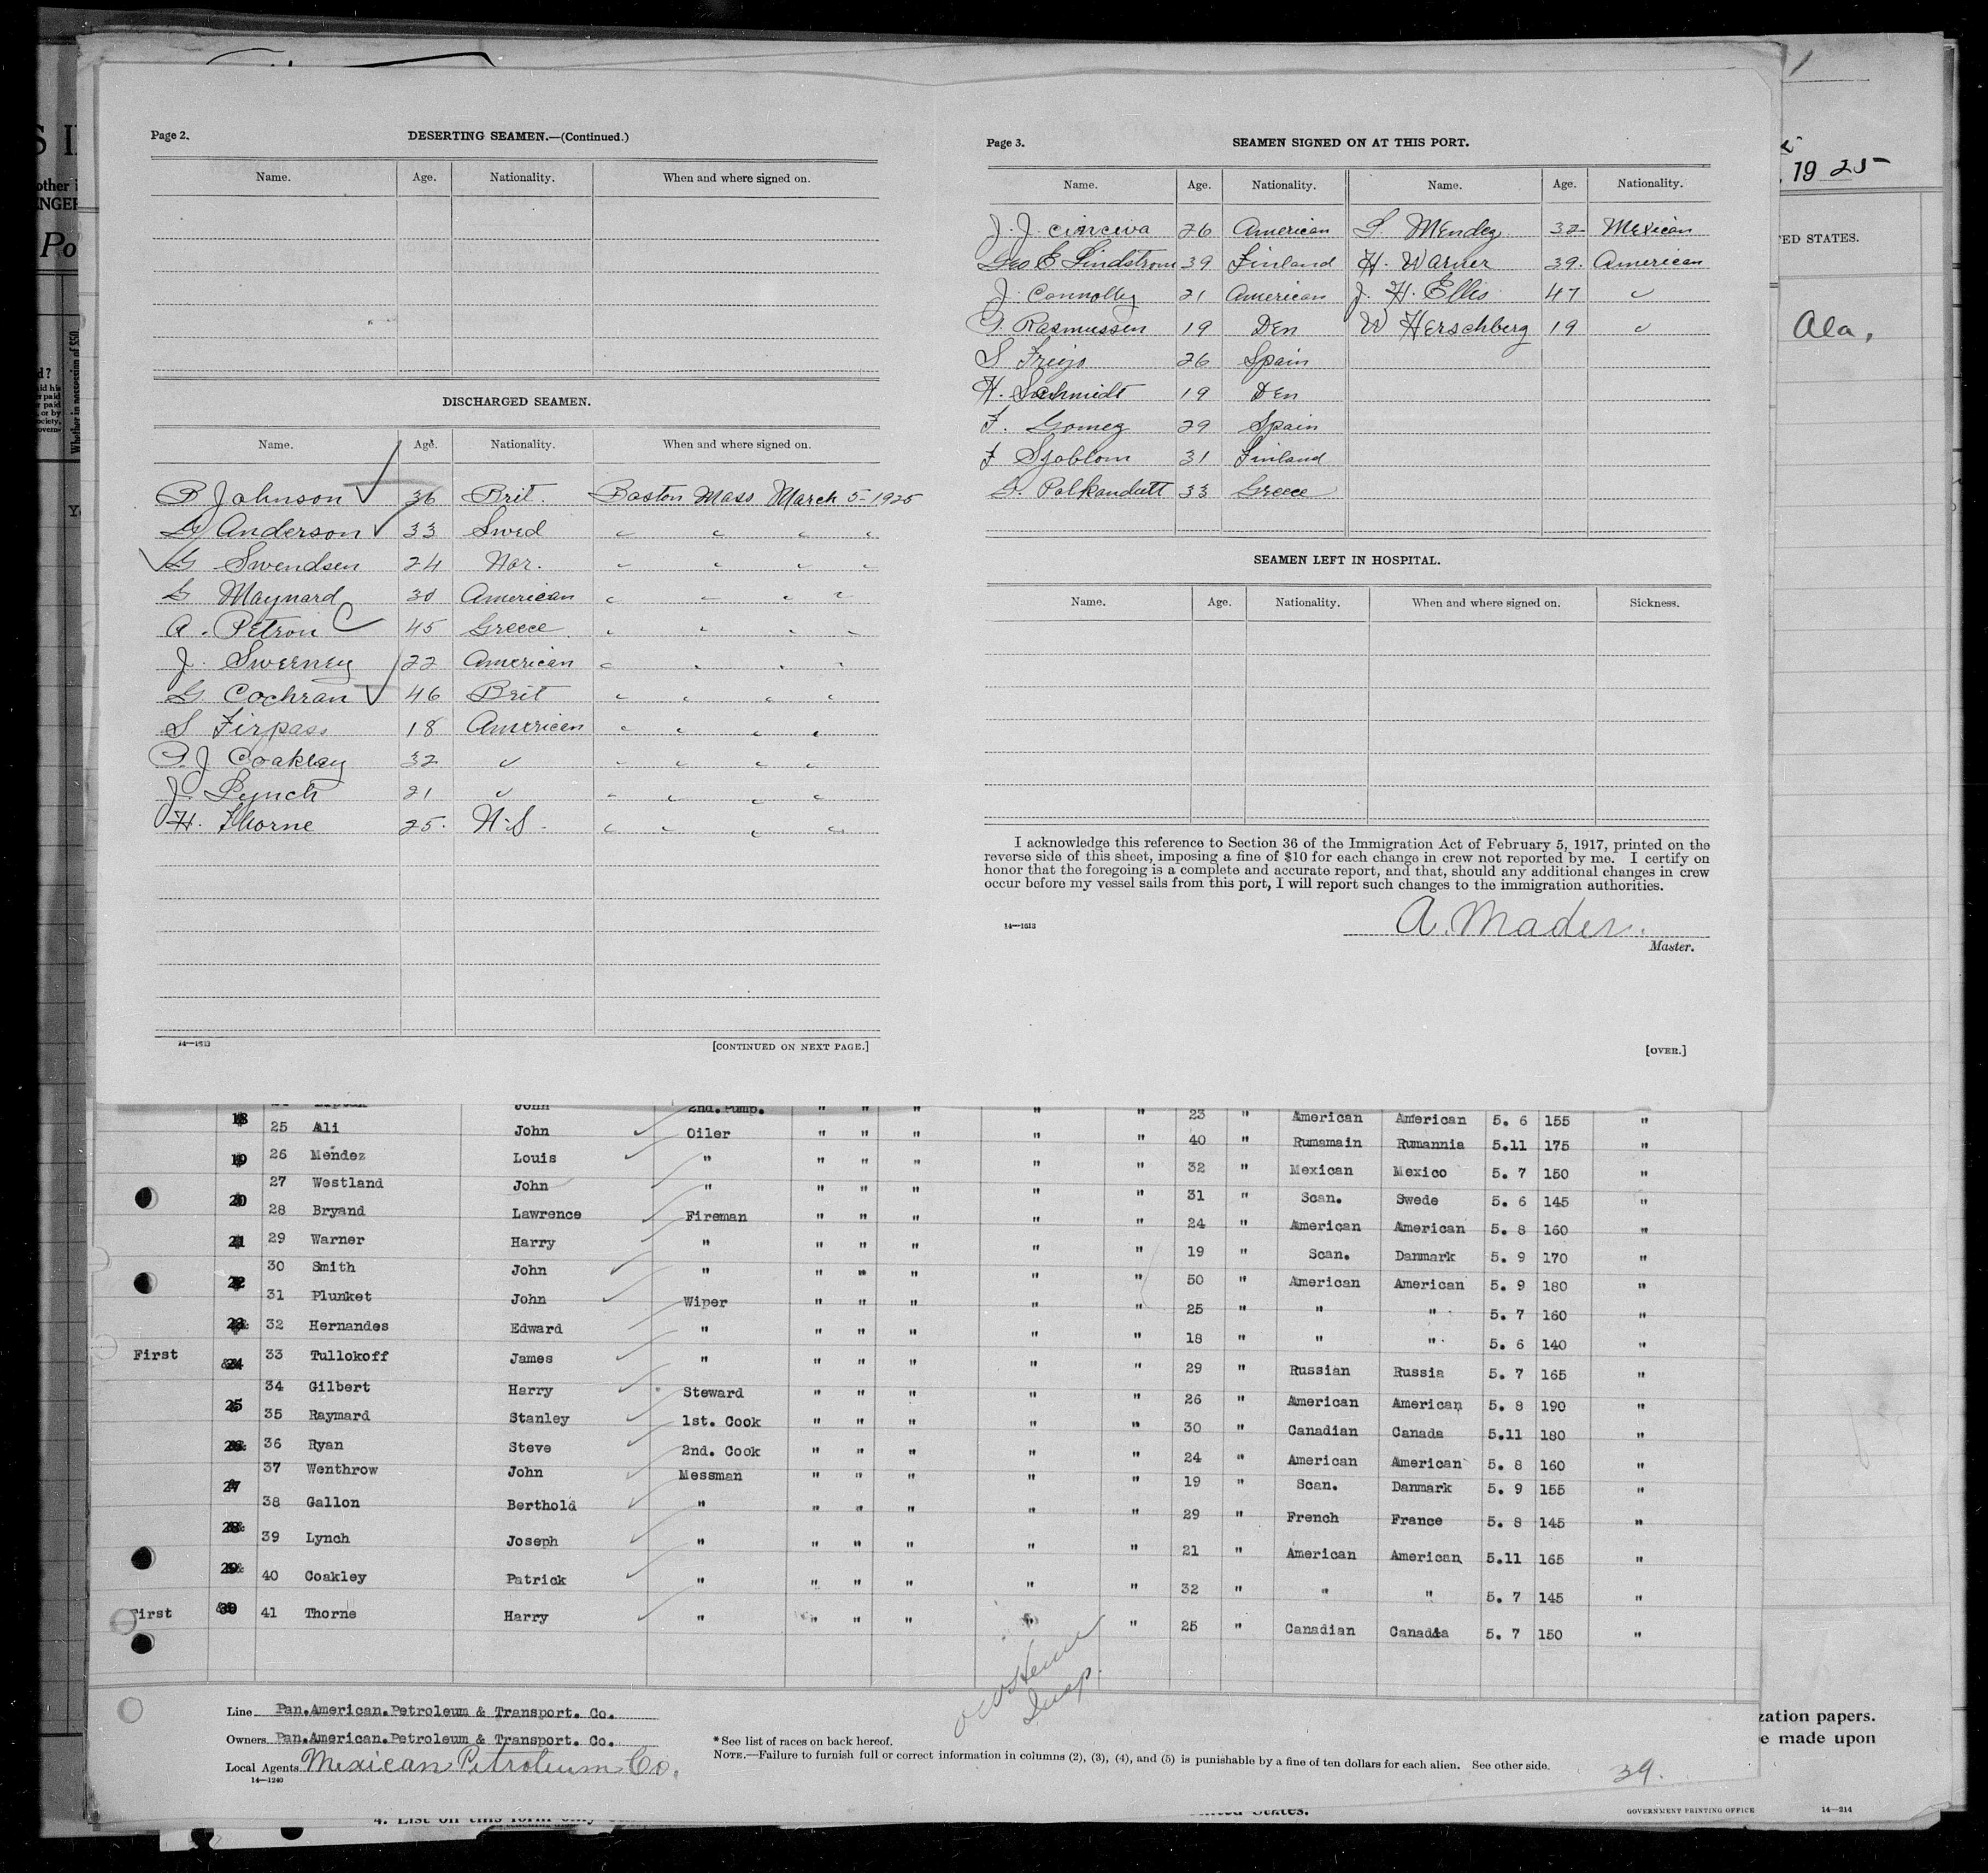 Page 2.
DESERTING SEAMEN.—(Continued.)
Name. Age. Nationality. When and where signed on.
DISCHARGED SEAMEN.
Name. Age. Nationality. When and where signed on.
B Johnson 36 Brit. Boston Mass March 5-1925
G Anderson 33 Swed " " " "
G Swendsen 24 Nor. " " " "
G Maynard 30 American " " " "
A. Petron 45 Greece " " " "
J. Sweeney 22 American " " " "
G. Cochran 46 Brit " " " "
S Firpass 18 American " " " "
P. J Coakley 32 " " " " "
J. Lynch 21 " " " " "
H. Thorne 25. N.S. " " " "
14—1613
[CONTINUED ON NEXT PAGE.]
Page 3.
SEAMEN SIGNED ON AT THIS PORT.
Name. Age. Nationality. Name. Age. Nationality.
J. J. Cinceiva 26 American L. Mendez 32 Mexican
Geo E Lindstrom 39 Finland H. Warner 39. American
J. Connolley 21 American J. H. Ellis 47 "
G. Rasmussen 19 Den W Herschberg 19 "
S Freijo 26 Spain
H. Schmidt 19 Den
F. Gomez 29 Spain
F Sjoblom 31 Finland
G. Polkandutt 33 Greece
SEAMEN LEFT IN HOSPITAL.
Name. Age. Nationality. When and where signed on. Sickness.
I acknowledge this reference to Section 36 of the Immigration Act of February 5, 1917, printed on the
reverse side of this sheet, imposing a fine of $10 for each change in crew not reported by me. I certify on
honor that the foregoing is a complete and accurate report, and that, should any additional changes in crew
occur before my vessel sails from this port, I will report such changes to the immigration authorities.
14—1613
A. Mader.
Master.
[OVER.]
1925
TED STATES.
Ala,
John 2nd. Pump. " " " " " 23 " American American 5. 6 155 "
18 25 Ali John Oiler " " " " " 40 " Rumamain Rumannia 5.11 175 "
19 26 Mendez Louis " " " " " " 32 " Mexican Mexico 5. 7 150 "
27 Westland John " " " " " " 31 " Scan. Swede 5. 6 145 "
20 28 Bryand Lawrence Fireman " " " " " 24 " American American 5. 8 160 "
21 29 Warner Harry " " " " " " 19 " Scan. Danmark 5. 9 170 "
22 30 Smith John " " " " " " 50 " American American 5. 9 180 "
31 Plunket John Wiper " " " " " 25 " " " 5. 7 160 "
23 32 Hernandes Edward " " " " " " 18 " " " 5. 6 140 "
First 24 33 Tullokoff James " " " " " " 29 " Russian Russia 5. 7 165 "
34 Gilbert Harry Steward " " " " " 26 " American American 5. 8 190 "
25 35 Raymard Stanley 1st. Cook " " " " " 30 " Canadian Canada 5.11 180 "
26 36 Ryan Steve 2nd. Cook " " " " " 24 " American American 5. 8 160 "
37 Wenthrow John Messman " " " " " 19 " Scan. Danmark 5. 9 155 "
27 38 Gallon Berthold " " " " " " 29 " French France 5. 8 145 "
28 39 Lynch Joseph " " " " " " 21 " American American 5.11 165 "
29 40 Coakley Patrick " " " " " " 32 " " " 5. 7 145 "
First 30 41 Thorne Harry " " " " " " 25 " Canadian Canadaa 5. 7 150 "
Insp.
Line Pan.American.Petroleum & Transport. Co.
Owners Pan.American.Petroleum & Transport. Co.
Local Agents Mexican Petroleum Co.
14—1240
* See list of races on back hereof.
NOTE.—Failure to furnish full or correct information in columns (2), (3), (4), and (5) is punishable by a fine of ten dollars for each alien. See other side.
39.
zation papers.
e made upon
GOVERNMENT PRINTING OFFICE 14—214